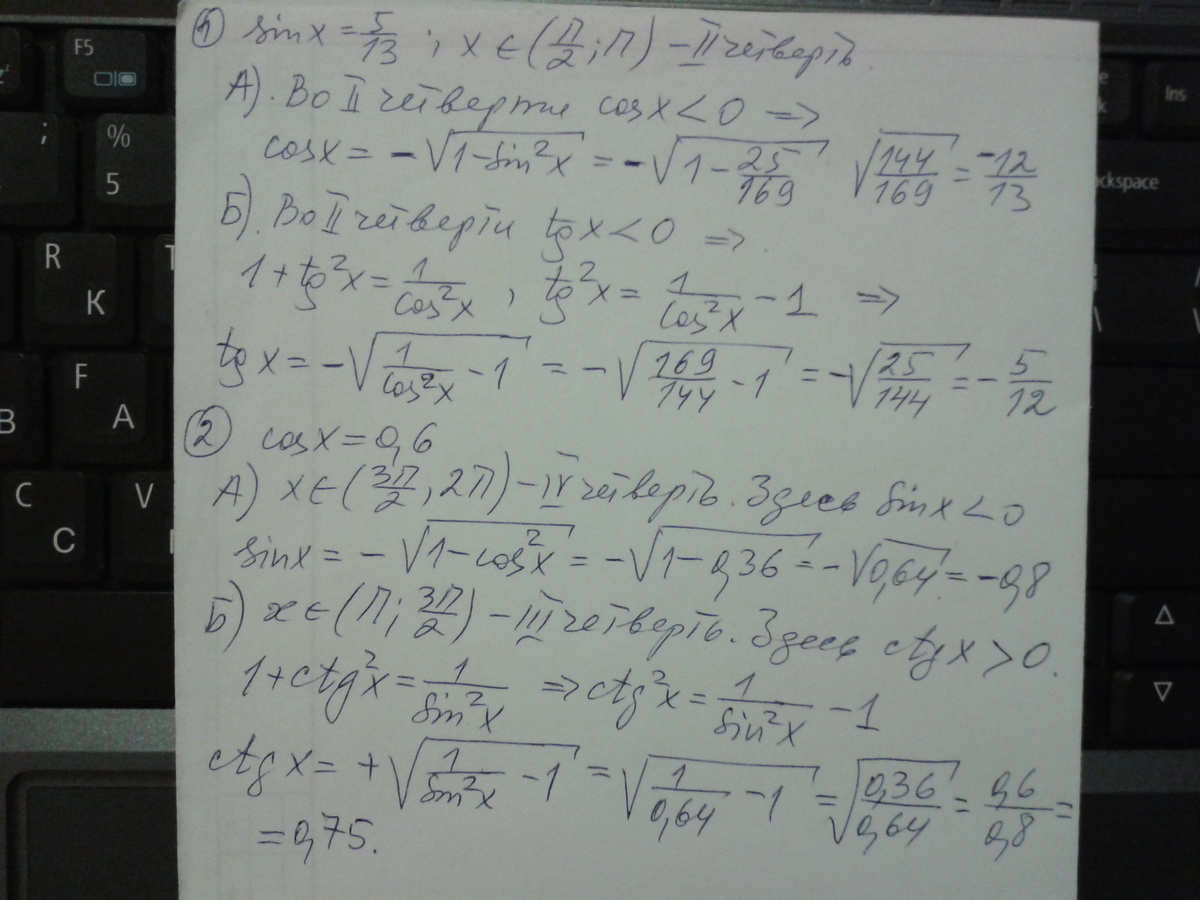 ① sin x = 5/13 ; x ∈ (П/2 ; П) – II четверть.
А). Во II четверти cos x < 0 =>
cos x = -√(1-sin²x) = -√(1 - 25/169) √(144/169) = -12/13
Б). Во II четверти tg x < 0 =>.
1 + tg²x = 1/cos²x , tg²x = 1/cos²x - 1 =>
tg x = -√(1/cos²x - 1) = -√(169/144 - 1) = -√(25/144) = -5/12
② cos x = 0,6
А) x ∈ (3П/2 , 2П) – IV четверть. Здесь sin x < 0
sin x = -√(1-cos²x) = -√(1-0,36) = -√(0,64) = -0,8
Б) x ∈ (П ; 3П/2) – III четверть. Здесь ctg x > 0.
1 + ctg²x = 1/sin²x => ctg²x = 1/sin²x - 1
ctg x = +√(1/sin²x - 1) = √(1/0,64 - 1) = √(0,36/0,64) = 0,6/0,8 =
= 0,75.
F5
;
%
5
R
К
T
F
А
В
C
С
V
Ins
ckspace